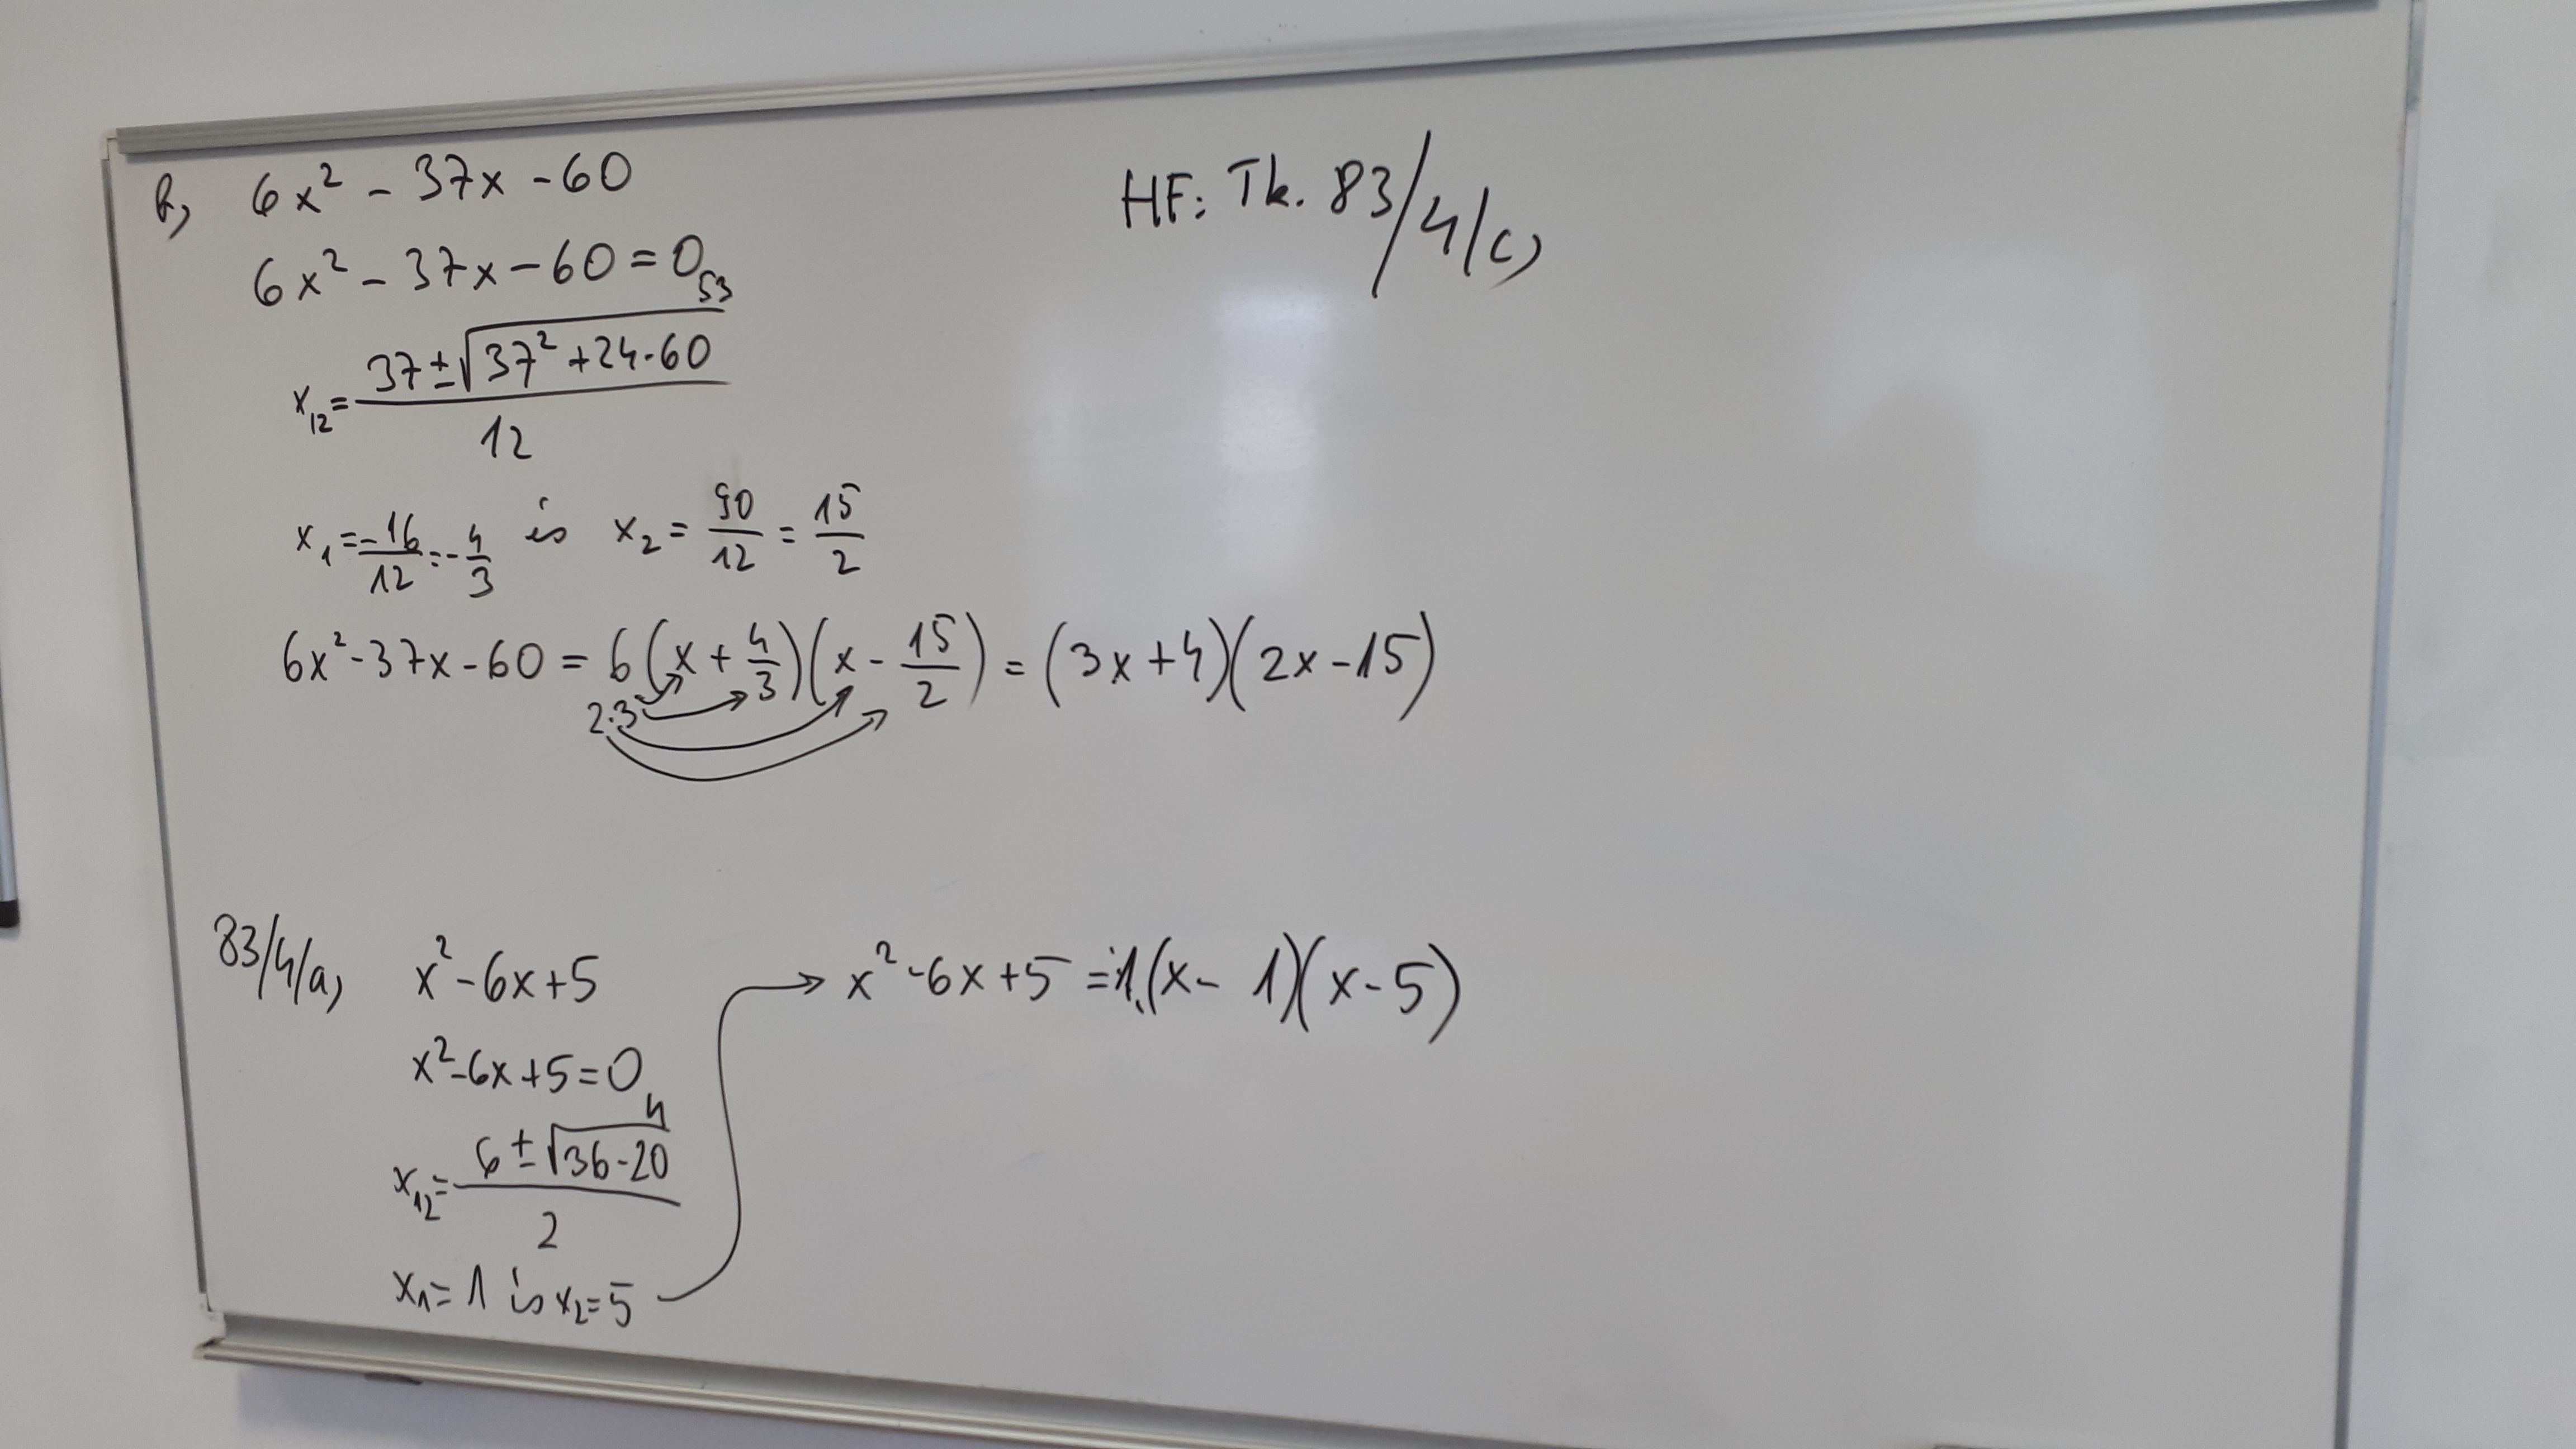 b, 6x² - 37x - 60
6x² - 37x - 60 = 0
53
x₁₂ = (37 ± √(37² + 24·60)) / 12
x₁ = -16/12 = -4/3 és x₂ = 90/12 = 15/2
6x² - 37x - 60 = 6(x + 4/3)(x - 15/2) = (3x + 4)(2x - 15)
2·3
HF: Tk. 83/4/c)
83/4/a, x² - 6x + 5
x² - 6x + 5 = 0
4
x₁₂ = (6 ± √(36 - 20)) / 2
x₁ = 1 és x₂ = 5
x² - 6x + 5 = 1·(x - 1)(x - 5)